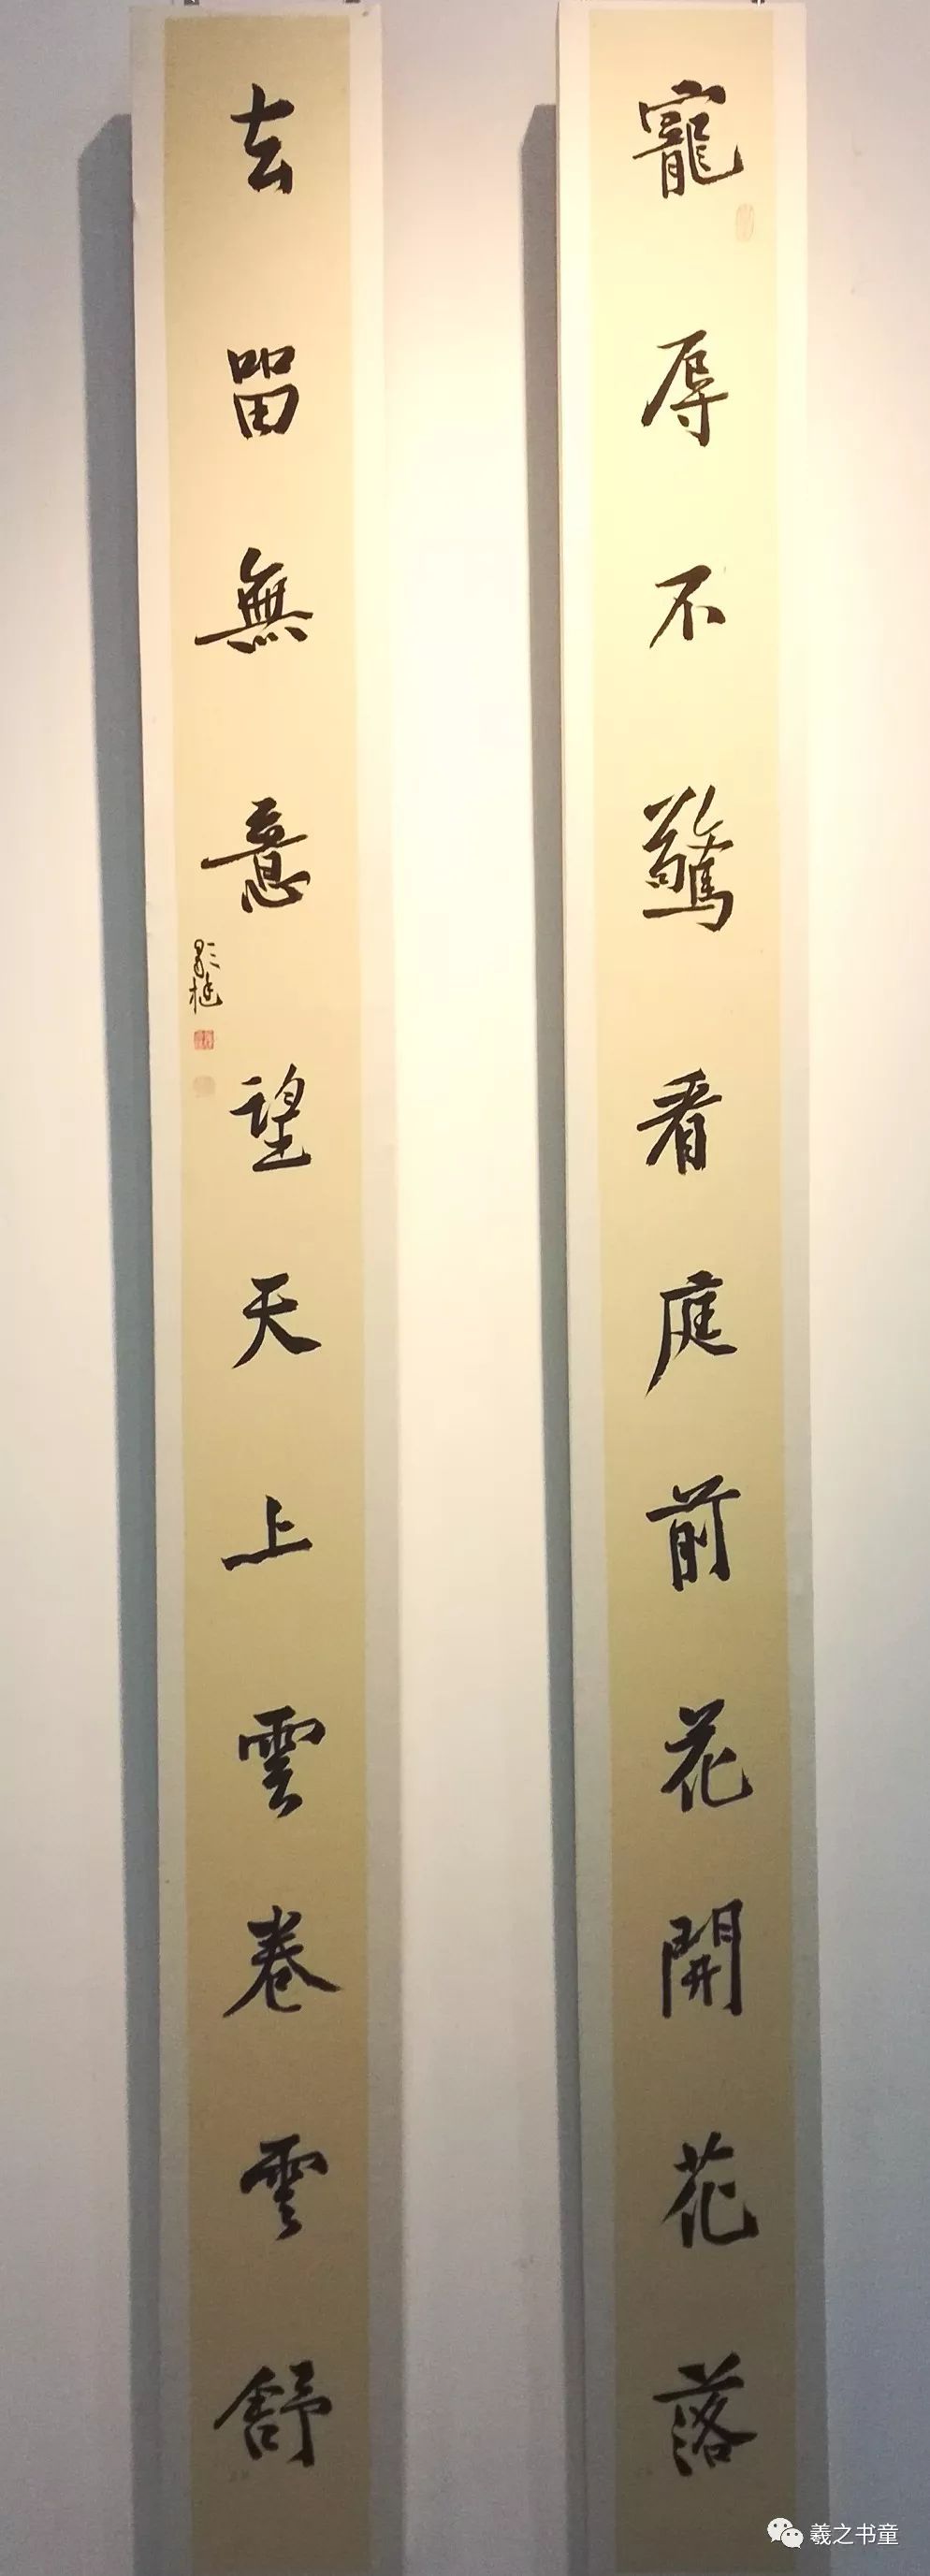 寵辱不驚看庭前花開花落
去留無意望天上雲卷雲舒
羲之书童